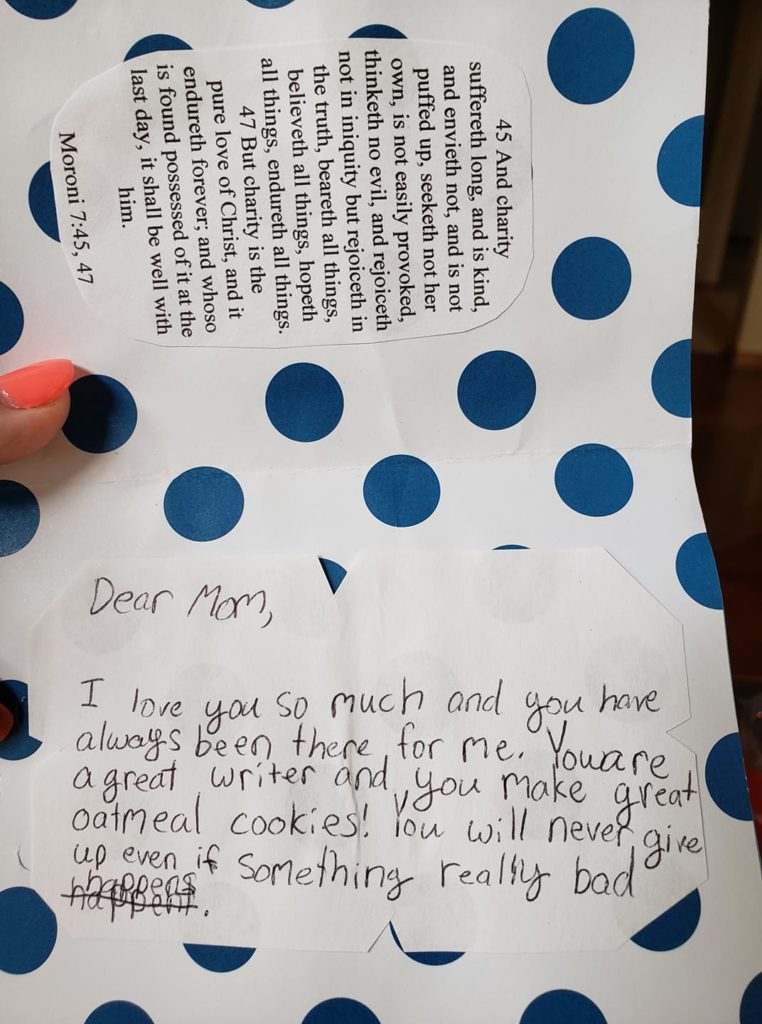 45 And charity
suffereth long, and is kind,
and envieth not, and is not
puffed up, seeketh not her
own, is not easily provoked,
thinketh no evil, and rejoiceth
not in iniquity but rejoiceth in
the truth, beareth all things,
believeth all things, hopeth
all things, endureth all things.
47 But charity is the
pure love of Christ, and it
endureth forever; and whoso
is found possessed of it at the
last day, it shall be well with
him.
Moroni 7:45, 47
Dear Mom,
I love you so much and you have
always been there for me. You are
a great writer and you make great
oatmeal cookies! You will never give
up even if something really bad
happens
happent.